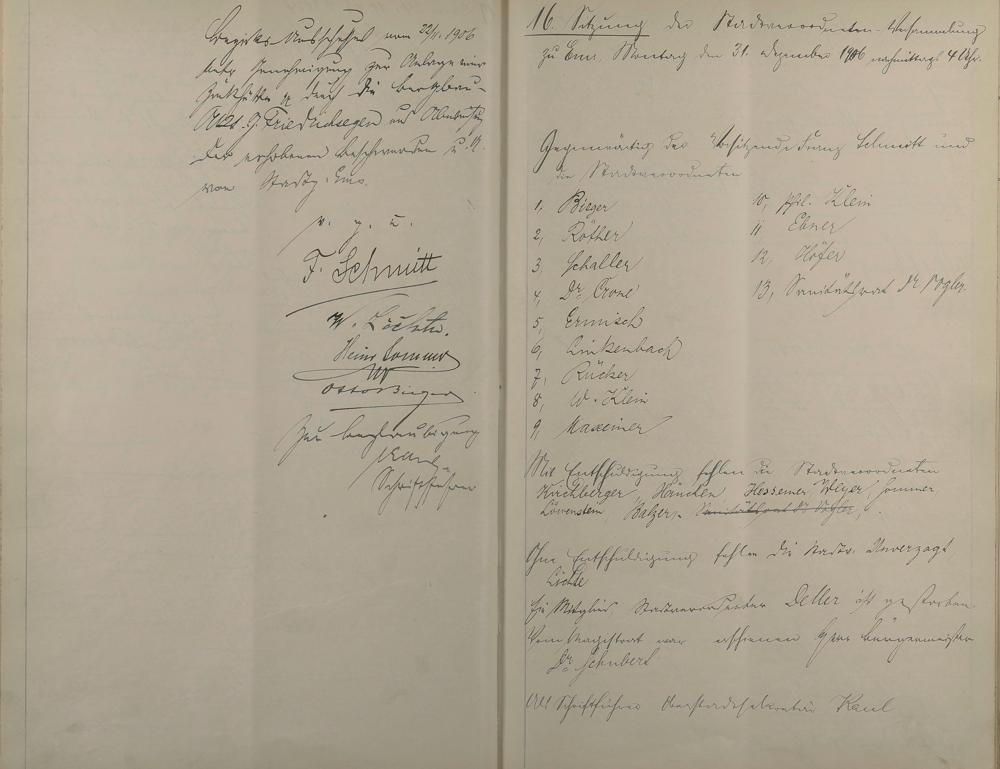 Bezirks Ausschusses vom 22/11. 1906
betr. Genehmigung zur Anlage einer
Zinkhütte pp durch die Bergbau-
Akt. G. Friedrichssegen auf
dar erhobenen Beschwerden u. A.
von Stadtg. Ems.
v. g. u.
F. Schmitt
W. Lichte.
Heinr Sommer
Otto Bieger
Zur Beglaubigung
Kaul
Schriftführer
16. Sitzung der Stadtverordneten-Versammlung
zu Ems, Montag den 31. Dezember 1906 nachmittags 4 Uhr.
Gegenwärtig der Vorsitzende Franz Schmitt und
die Stadtverordneten
1, Bieger
2, Röther
3, Schaller
4, Dr. Crone
5, Ermisch
6, Linkenbach
7, Rücker
8, W. Klein
9, Maxeiner
10, Phil. Klein
11 Ebner
12, Höfer
13, Sanitätsrat Dr Vogler.
Mit Entschuldigung fehlen die Stadtverordneten
Kirchberger, Häncken, Hessemer, Weyer, Sommer
Löwenstein, Balzer, Sanitätsrat Dr Vogler,
Ohne Entschuldigung fehlen die Stadtv. Unverzagt,
Lichte
Ein Mitglied, Stadtverordneter Deller ist gestorben.
Vom Magistrat war erschienen Herr Bürgermeister
Dr. Schubert
Als Schriftführer Oberstadtsekretär Kaul